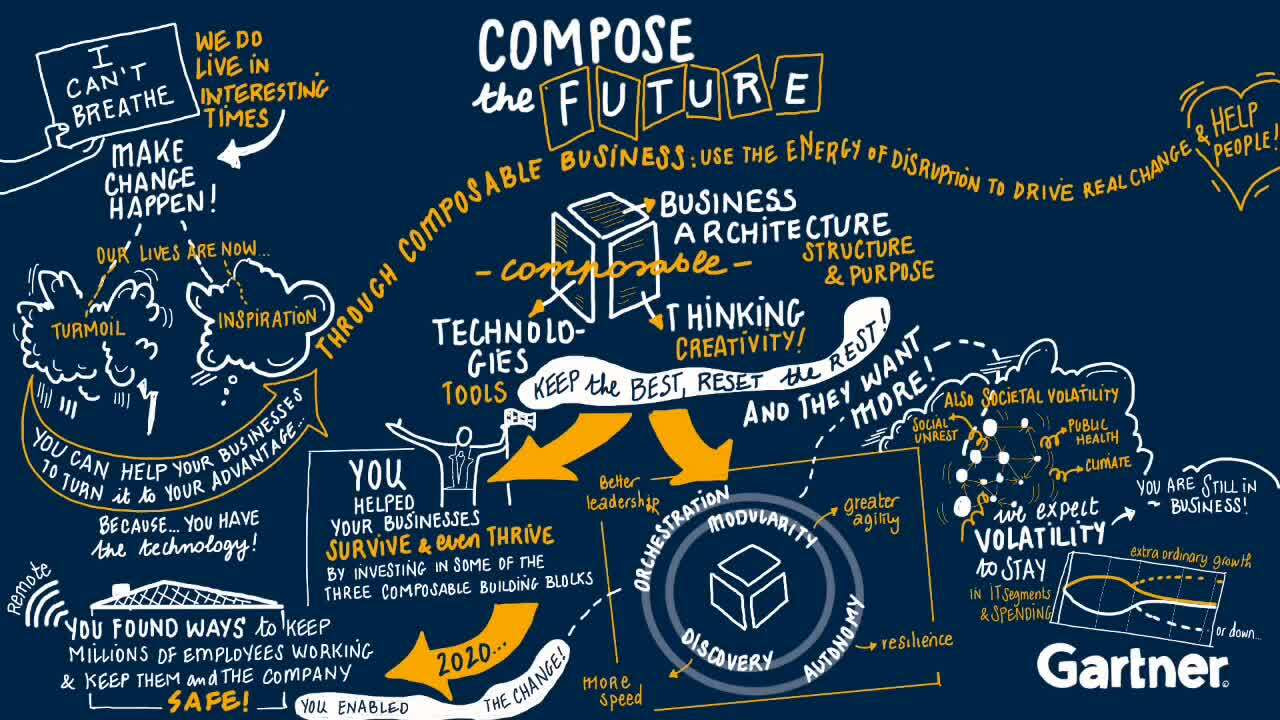 I
CAN'T
BREATHE
WE DO
LIVE IN
INTERESTING
TIMES
MAKE
CHANGE
HAPPEN!
OUR LIVES ARE NOW...
TURMOIL
INSPIRATION
YOU CAN HELP YOUR BUSINESSES
TO TURN it to YOUR ADVANTAGE...
BECAUSE... YOU HAVE
the technology!
Remote
YOU FOUND WAYS to KEEP
MILLIONS OF EMPLOYEES WORKING
& KEEP THEM and THE COMPANY
SAFE!
COMPOSE
the FUTURE
THROUGH COMPOSABLE BUSINESS: USE THE ENERGY OF DISRUPTION TO DRIVE REAL CHANGE &
HELP
PEOPLE!
BUSINESS
ARCHITECTURE
STRUCTURE
& PURPOSE
- composable -
TECHNOLO-
GIES
TOOLS
THINKING
CREATIVITY!
KEEP the BEST, RESET the REST!
YOU
HELPED
YOUR BUSINESSES
SURVIVE & even THRIVE
BY INVESTING IN SOME OF THE
THREE COMPOSABLE BUILDING BLOCKS
2020...
YOU ENABLED THE CHANGE!
Better
leadership
ORCHESTRATION
MODULARITY
greater
agility
DISCOVERY
AUTONOMY
resilience
more
speed
AND THEY WANT
MORE!
ALSO SOCIETAL VOLATILITY
SOCIAL
UNREST
PUBLIC
HEALTH
CLIMATE
we expect
VOLATILITY
to STAY
IN IT Segments
& SPENDING
YOU ARE STILL IN
~ BUSINESS!
extra ordinary growth
or down...
Gartner